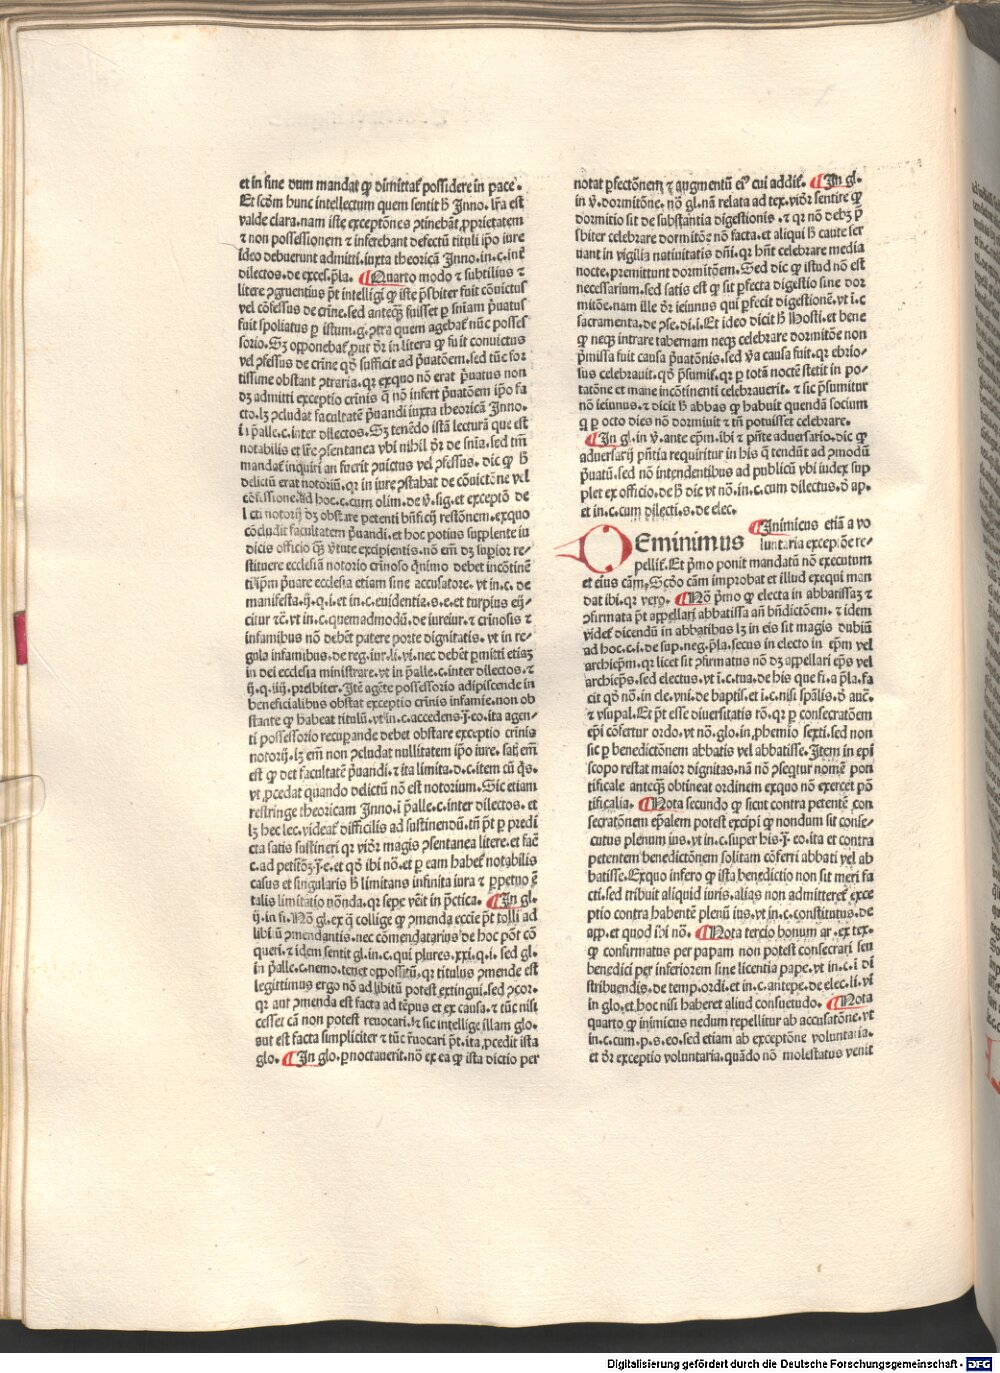 et in fine dum mandat ꝙ dimittat᷑ possidere in pace.
Et scd̄m hunc intellectum quem sentit h̄ Inno. lr̄a est
valde clara. nam iste exceptōnes ꝯtinebāt ꝓprietatem
⁊ non possessionem ⁊ inferebant defectū tituli ip̄o iure
ideo debuerunt admitti. iuxta theoricā Inno. in. c. int̄
dilectos. de exces. p̄la. ¶ Quarto modo ⁊ subtilius ⁊
litere ꝯgruentius pt̄ intelligi ꝙ iste p̄sbiter fuit cōuictus
vel cōfessus de crīne. sed anteqꝫ fuisset ꝑ sniam p̄uatus
fuit spoliatus ꝑ istum. g. ꝯtra quem agebat᷑ nūc posses
sorio. Sꝫ opponebat᷑ ꝓut dr̄ in litera ꝙ fuit conuictus
vel ꝯfessus de crīne qd̄ sufficit ad p̄uatōem. sed tūc for
tissime obstant ꝯtraria. qꝛ exquo nō erat p̄uatus non
dꝫ admitti exceptio crīnis q̄ nō infert p̄uatōem ip̄o fa
cto. lꝫ ꝯcludat facultatē p̄uandi iuxta theoricā Inno.
ī p̄alle. c. inter dilectos. Sꝫ tenēdo istā lecturā que est
notabilis et lr̄e ꝯsentanea vbi nihil dr̄ de snia. sed tm̄
mandat᷑ inquiri an fuerit ꝯuictus vel ꝯfessus. dic ꝙ h̄
delictū erat notoriū. qꝛ in iure ꝯstabat de cōuictōne vel
cōfessione. ad hoc. c. cum olim. de v̄. sig. et exceptō de
notorij dꝫ obstare petenti bn̄ficij restōnem. exquo
cōcludit facultatem p̄uandi. et hoc potius supplente iu
dicis officio qꝫ v̄tute excipientis. nō em̄ dꝫ supior re⸗
stituere ecclesiā notorio crīnoso
p̄uare ecclesia etiam sine accusatore. vt in. c. de
manifesta. ij. q. i. et in. c. euidentia. s. e. et turpius eij⸗
citur ꝛc̄. vt in. c. quemadmodū. de iureiur. ⁊ crīnosis ⁊
infamibus nō debēt patere porte dignitatis. vt in re⸗
gula infamibus. de reg. iur. li. vi. nec debēt ꝑmitti etiaꝫ
in dei ecclesia ministrare. vt in p̄alle. c. inter dilectos. ⁊
ij. q. iiij. presbiter. Itē agēte possessorio adipiscende in
beneficialibus obstat exceptio crīnis infamie. non ob
stante ꝙ habeat titulū. vt in. c. accedens. j̄. eo. ita agen⸗
ti possessorio recuperande debet obstare exceptio crīnis
notorij. lꝫ em̄ non ꝯcludat nullitatem ip̄o iure. sat᷑ em̄
est ꝙ det facultatē p̄uandi. ⁊ ita limita. d. c. item cū qs.
vt ꝓcedat quando delictū non est notorium. Sic etiam
restringe theoricam Inno. ī p̄alle. c. inter dilectos. et
lꝫ hec lec. videat᷑ difficilis ad sustinendū. tn̄ pt̄ ꝑ predi
cta satis sustineri qꝛ videt᷑ magis ꝯsentanea litere. et
c. ad petitōꝫ. j̄. e. et qd̄ ibi nō. et ꝑ eam habet᷑ notabilis
casus et singularis h̄ limitans infinita iura ⁊ ꝑpetuo ē
talis limitatio nōnda. qꝛ sepe vēit in p̄ctica. ¶ In gl.
ij. in fi. Nō gl. ex q̄ collige ꝙ ꝯmenda eccīe pt̄ tolli ad
libitū ꝯmendantis. nec cōmendatarius de hoc pōt cō
queri. ⁊ idem sentit gl. in. c. qui plures. xxi. q. i. sed gl.
in p̄alle. c. nemo. tenet oppositū. qꝛ titulus ꝯmende est
legittimus ergo nō ad libitū potest extingui. sed ꝯcor.
qꝛ aut ꝯmenda est facta ad tēpus et ex causa. ⁊ tūc nisi
cesset cā non potest reuocari. ⁊ sic intellige illam glo.
aut est facta simpliciter ⁊ tūc r̄uocari pt̄. ita ꝓcedit ista
glo. ¶ In glo. ꝑnoctauerit. nō ex ea ꝙ ista dictio per
notat ꝑfectōnem ⁊ augmentū eiꝰ cui addit᷑. ¶ In gl.
in v̄. dormitōne. nō gl. nā relata ad tex. videt᷑ sentire ꝙ
dormitio sit de substantia digestionis. ⁊ qꝛ nō debꝫ p̄
sbiter celebrare dormitōe nō facta. et aliqui h̄ caute ser
uant in vigilia natiuitatis dn̄i. qꝛ hn̄t celebrare media
nocte. premittunt dormitōem. Sed dic ꝙ istud nō est
necessarium. sed satis est ꝙ sit ꝑfecta digestio sine dor
mitōe. nam ille dr̄ ieiunus qui ꝑfecit digestionē. vt ī. c.
sacramenta. de ꝯse. di. i. Et ideo dicit h̄ Hosti. et bene
ꝙ neqꝫ intrare tabernam neqꝫ celebrare dormitōe non
p̄missa fuit causa p̄uatōnis. sed v̄a causa fuit. qꝛ ebrio⸗
sus celebrauit. qd̄ p̄sumit᷑. qꝛ ꝑ totā noctē stetit in po⸗
tatōne et mane incōtinenti celebrauerit. ⁊ sic p̄sumitur
nō ieiunus. ⁊ dicit h̄ abbas ꝙ habuit quendā socium
q ꝑ octo dies nō dormiuit ⁊ tn̄ potuisset celebrare.
¶ In gl. in v̄. ante ep̄m. ibi ⁊ pn̄te aduersario. dic ꝙ
aduersarij pn̄tia requiritur in his q̄ tendūt ad ꝯmodū
p̄uatū. sed nō intendentibus ad publicū vbi iudex sup
plet ex officio. de h̄ dic vt nō. in. c. cum dilectus. d ap.
et in. c. cum dilecti. s. de elec.
¶ Inimicus etiā a vo
Deminimus luntaria exceptōe re⸗
pellit᷑. Et p̄mo ponit mandatū nō executum
et eius cām. Scd̄o cām improbat et illud exequi man
dat ibi. qꝛ vero. ¶ Nō p̄mo ꝙ electa in abbatissaꝫ ⁊
ꝯfirmata pt̄ appellari abbatissa añ bn̄dictōem. ⁊ idem
videt᷑ dicendū in abbatibus lꝫ in eis sit magis dubiū
ad hoc. c. i. de sup. neg. p̄la. secus in electo in ep̄m vel
archiep̄m. qꝛ licet sit ꝯfirmatus nō dꝫ appellari ep̄s vel
archiep̄s. sed electus. vt ī. c. tua. de his que fi. a p̄la. fa
cit qd̄ nō. in cle. vni. de baptis. et ī. c. nisi sp̄alis. d̄ auc̄.
⁊ vsupal. Et pt̄ esse diuersitatis rō. qꝛ ꝑ consecratōem
ep̄i cōfertur ordo. vt nō. glo. in ꝓhemio sexti. sed non
sic ꝑ benedictōnem abbatis vel abbatisse. Item in epī
scopo restat maior dignitas. nā nō ꝯseqtur nomē pon
tificale anteqꝫ obtineat ordinem exquo nō exercet pō
tificalia. ¶ Nota secundo ꝙ sicut contra petentē con
secratōnem ep̄alem potest excipi ꝙ nondum sit conse⸗
cutus plenum ius. vt in. c. super his. j̄. eo. ita et contra
petentem benedictōnem solitam cōferri abbati vel ab
batisse. Exquo infero ꝙ ista benedictio non sit meri fa
cti. sed tribuit aliquid iuris. alias non admitteret᷑ exce
ptio contra habentē plenū ius. vt in. c. constitutus. de
app. et quod ibi nō. ¶ Nota tercio bonum ar. ex tex.
ꝙ confirmatus per papam non potest consecrari seu
benedici per inferiorem sine licentia pape. vt in. c. ī di
stribuendis. de temp. ordi. et in. c. antepe. de elec. li. vi
in glo. et hoc nisi haberet aliud consuetudo. ¶ Nota
quarto ꝙ inimicus nedum repellitur ab accusatōne. vt
in. c. cum. p. s. eo. sed etiam ab exceptōne voluntaria.
et dr̄ exceptio voluntaria. quādo nō molestatus venit
Digitalisierung gefördert durch die Deutsche Forschungsgemeinschaft - DFG